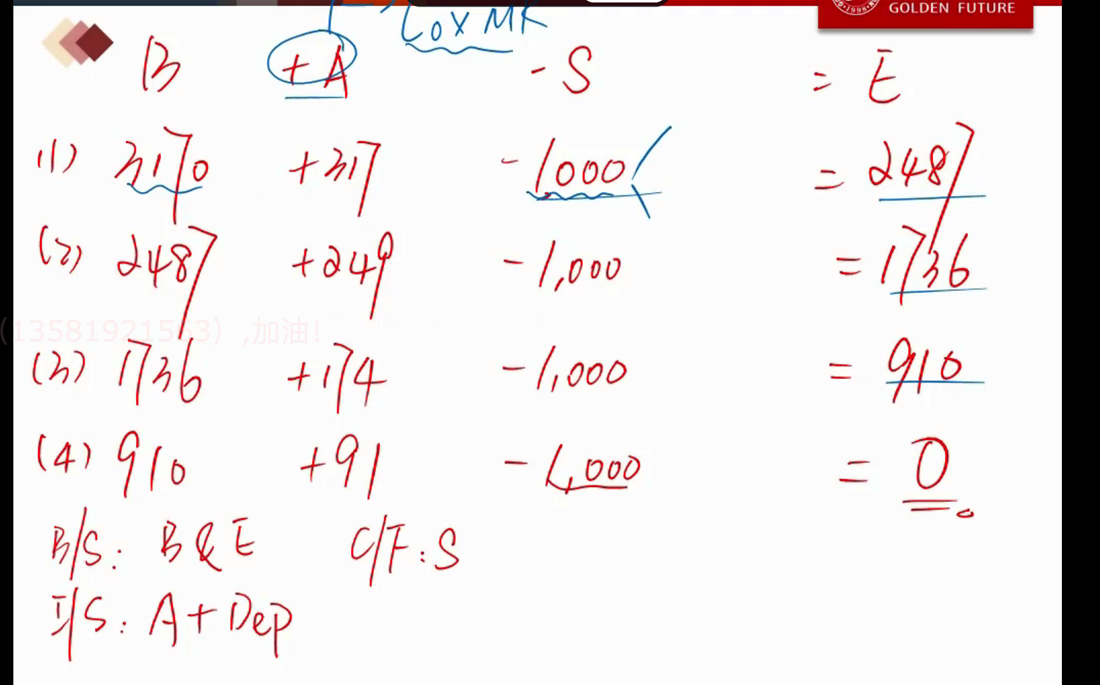 GOLDEN FUTURE
·1998·
L0 x MR
B +A - S = E
(1) 3170 +317 -1000 = 2487
(2) 2487 +249 -1,000 = 1736
(3) 1736 +174 -1,000 = 910
(4) 910 +91 -1,000 = 0
(13581921563) ,加油!
B/S: B & E C/F: S
I/S: A + Dep